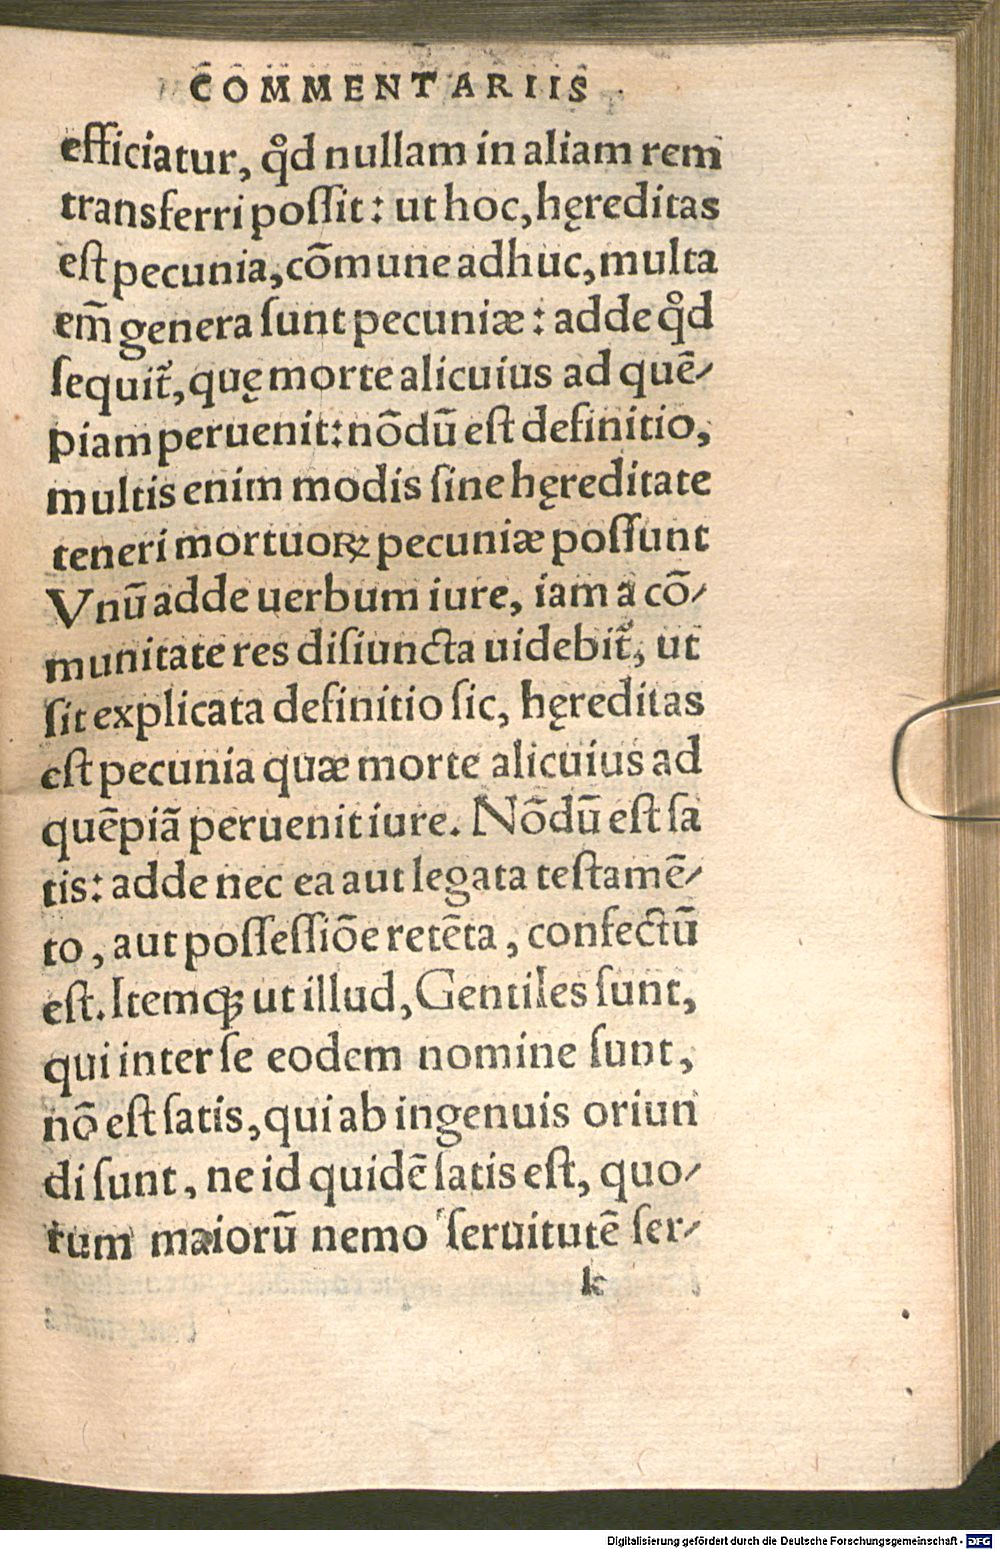 COMMENTARIIS
efficiatur, qd̊ nullam in aliam rem
transferri poſſit: ut hoc, hęreditas
eſt pecunia, cõmune adhuc, multa
em̃ genera ſunt pecuniæ: adde qd̊
ſequit᷑, quę morte alicuius ad quē⸗
piam peruenit: nõdū eſt definitio,
multis enim modis ſine hęreditate
teneri mortuoꝝ pecuniæ poſſunt
Vnū adde uerbum iure, iam a cõ⸗
munitate res diſiuncta uidebit᷑, ut
ſit explicata definitio ſic, hęreditas
eſt pecunia quæ morte alicuius ad
quēpiā peruenit iure. Nõdū eſt ſa
tis: adde nec ea aut legata teſtamē⸗
to, aut poſſeſſiõe retēta, confectū
eſt. Itemqꝫ ut illud, Gentiles ſunt,
qui inter ſe eodem nomine ſunt,
nõ eſt ſatis, qui ab ingenuis oriun
di ſunt, ne id quidē ſatis eſt, quo⸗
rum maiorū nemo ſeruitutē ſer⸗
k
Digitalisierung gefördert durch die Deutsche Forschungsgemeinschaft - DFG